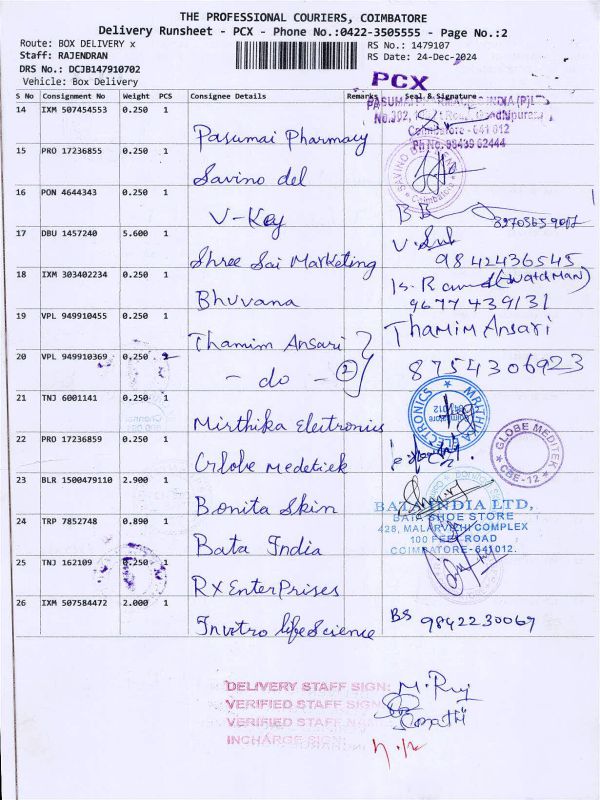 THE PROFESSIONAL COURIERS, COIMBATORE
Delivery Runsheet - PCX - Phone No.:0422-3505555 - Page No.:2
Route: BOX DELIVERY x
RS No.: 1479107
Staff: RAJENDRAN
RS Date: 24-Dec-2024
DRS No.: DCJB147910702
Vehicle: Box Delivery
PCX
S No Consignment No Weight PCS Consignee Details Remarks Seal & Signature
14 IXM 507454553 0.250 1
Pasumai Pharmacy
Coimbatore - 641 012
Ph No: 98439 62444
15 PRO 17236855 0.250 1
Savino del
16 PON 4644343 0.250 1
V-Key
17 DBU 1457240 5.600 1
Shree Sai Marketing
9842436545
18 IXM 303402234 0.250 1
Bhuvana
(Watchman)
9677439131
19 VPL 949910455 0.250 1
Thamim Ansari
Thamim Ansari
20 VPL 949910369 0.250
- do - 2
8754306923
21 TNJ 6001141 0.250 1
Mirthika Electronics
22 PRO 17236859 0.250 1
Globe Medetiek
GLOBE MEDITEK
CBE-12
23 BLR 1500479110 2.900 1
Bonita Skin
BATA INDIA LTD,
BATA SHOE STORE
428, MALARVIZHI COMPLEX
100 FEET ROAD
COIMBATORE-641012.
24 TRP 7852748 0.890 1
Bata India
25 TNJ 162109 0.250 1
RX EnterPrises
26 IXM 507584472 2.000 1
Invitro lifeScience
BS 9842230069
DELIVERY STAFF SIGN:
VERIFIED STAFF SIGN
VERIFIED STAFF
INCHARGE SIGN